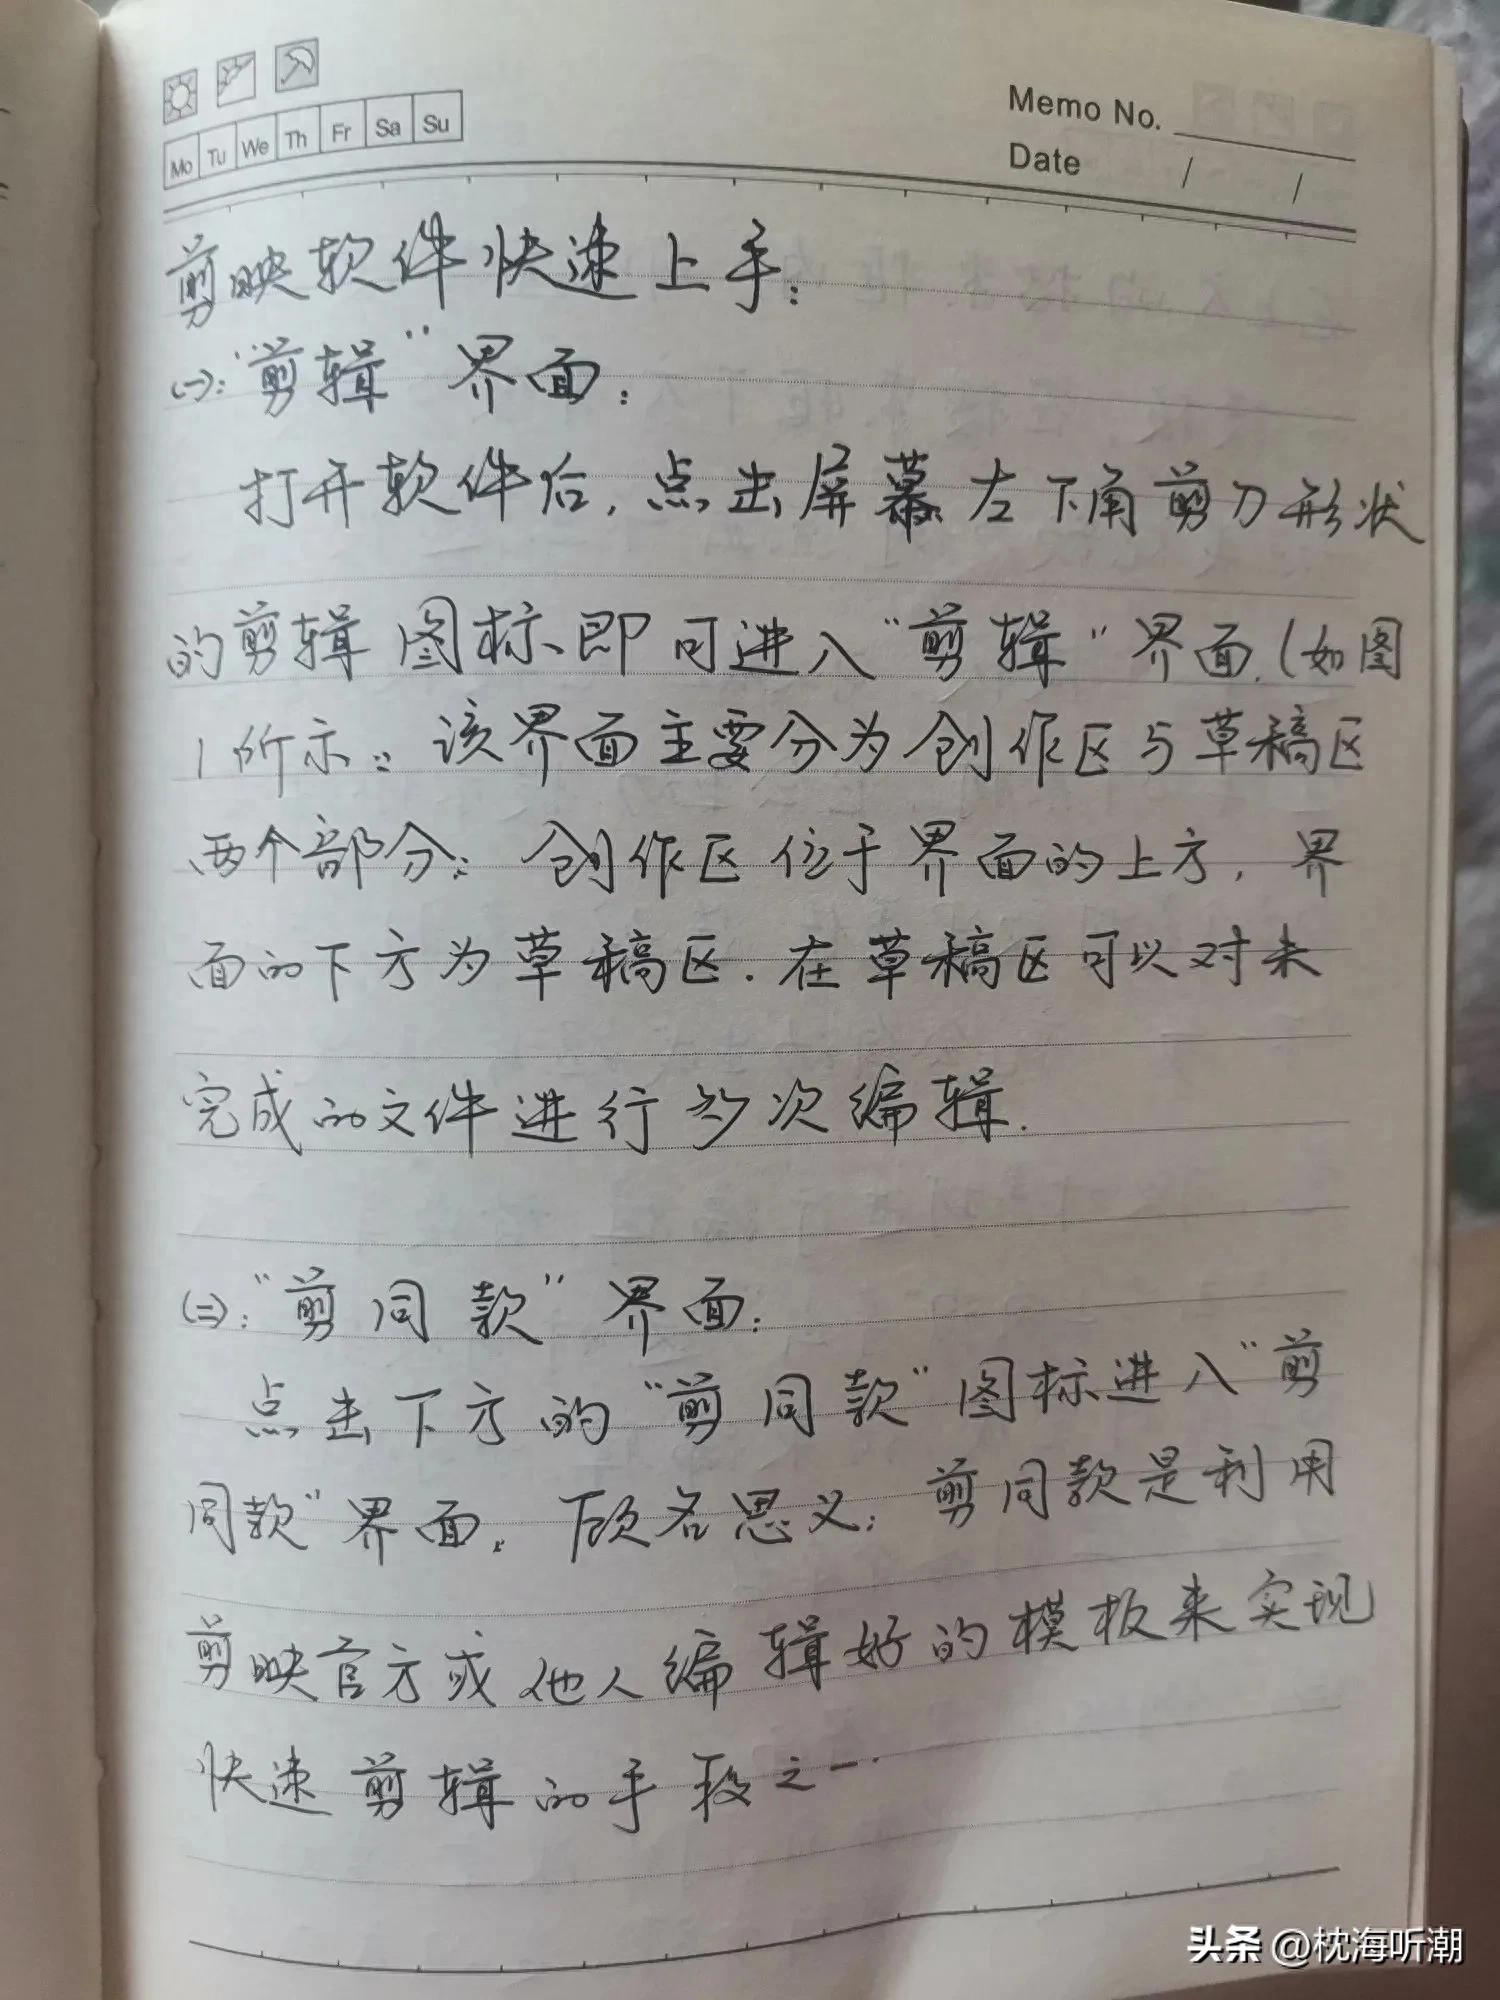 Mo Tu We Th Fr Sa Su
Memo No.
Date / /
剪映软件快速上手：
(一)：“剪辑”界面：
打开软件后，点击屏幕左下角剪刀形状
的剪辑图标即可进入“剪辑”界面.(如图
1所示：该界面主要分为创作区与草稿区
两个部分：创作区位于界面的上方，界
面的下方为草稿区.在草稿区可以对未
完成的文件进行多次编辑.
(二)：“剪同款”界面：
点击下方的“剪同款”图标进入“剪
同款”界面。顾名思义：剪同款是利用
剪映官方或他人编辑好的模板来实现
快速剪辑的手段之一.
头条 @枕海听潮